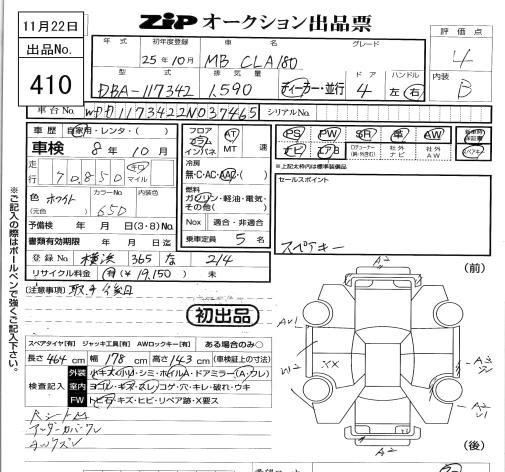 11月22日
ZIP オークション出品票
出品No.
410
年式 初年度登録 車名 グレード
25年10月 MB CLA180
型式 排気量 ドア ハンドル
DBA-117342 1,590 ディーラー・並行 4 左・右
評価点
4
内装
B
車台No. WDD1173422N037465 シリアルNo.
車歴 自家用・レンタ・( )
車検 8年10月
走行 70,850 キロ マイル
色 ホワイト
(元色)
カラーNo. 650
内装色
予備検 年 月 日(3・8)・No
書類有効期限 年 月 日迄
登録No 横浜 365 214
リサイクル料金 有(¥19,150) 未
[注意事項]
フロア
コラム
インパネ
AT
MT 速
冷房
無・C・AC・AAC・( )
燃料
ガソリン・軽油・電気・その他( )
Nox 適合・非適合
乗車定員 5 名
PS PW SR 革 AW
ナビ エアB 社外ナビ 社外AW
※上記太枠内は標準装備品
セールスポイント
スペアキー
初出品
※ご記入の際はボールペンで強くご記入下さい。
スペアタイヤ[有] ジャッキ工具[有] AWロックキー[有] ある場合のみ○
長さ 464 cm 幅 178 cm 高さ 143 cm (車検証上の寸法)
検査記入
外装 小キズ・小U・シミ・ホイルA・ドアミラー(A,ワレ)
室内 ヨゴレ・キズ・スレ・コゲ・穴・キレ・破れ・ウキ
FW トビ石・キズ・ヒビ・リペア跡・X要ス
(前)
(後)
A2
XX
A2